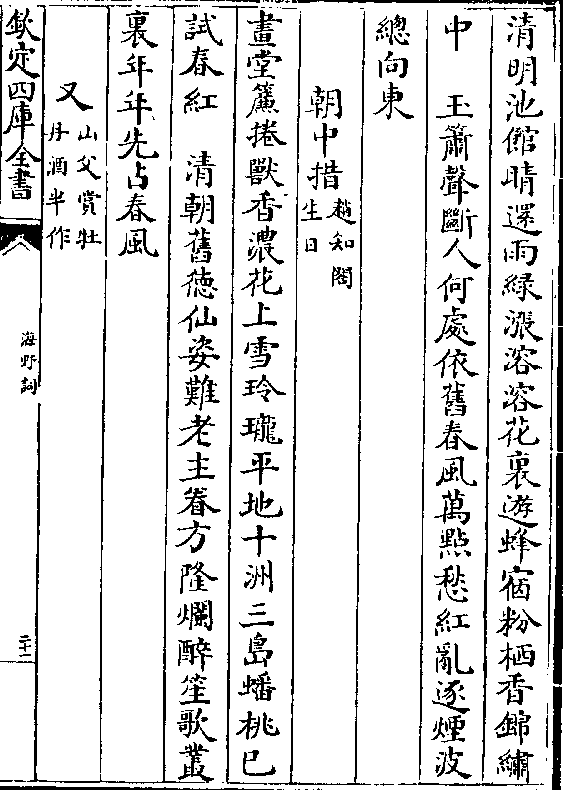 清明池館晴還雨綠漲溶溶花裏遊蜂宿粉栖香錦繡
中　玉簫聲斷人何處依舊春風萬點愁紅亂逐煙波
總向東
朝中措趙知閤生日
畫堂簾捲獸香濃花上雪玲瓏平地十洲三島蟠桃已
試春紅　清朝舊德仙姿難老主眷方隆爛醉笙歌叢
裏年年先占春風
又山父賞牡丹酒半作
欽定四庫全書
海野詞
二十一